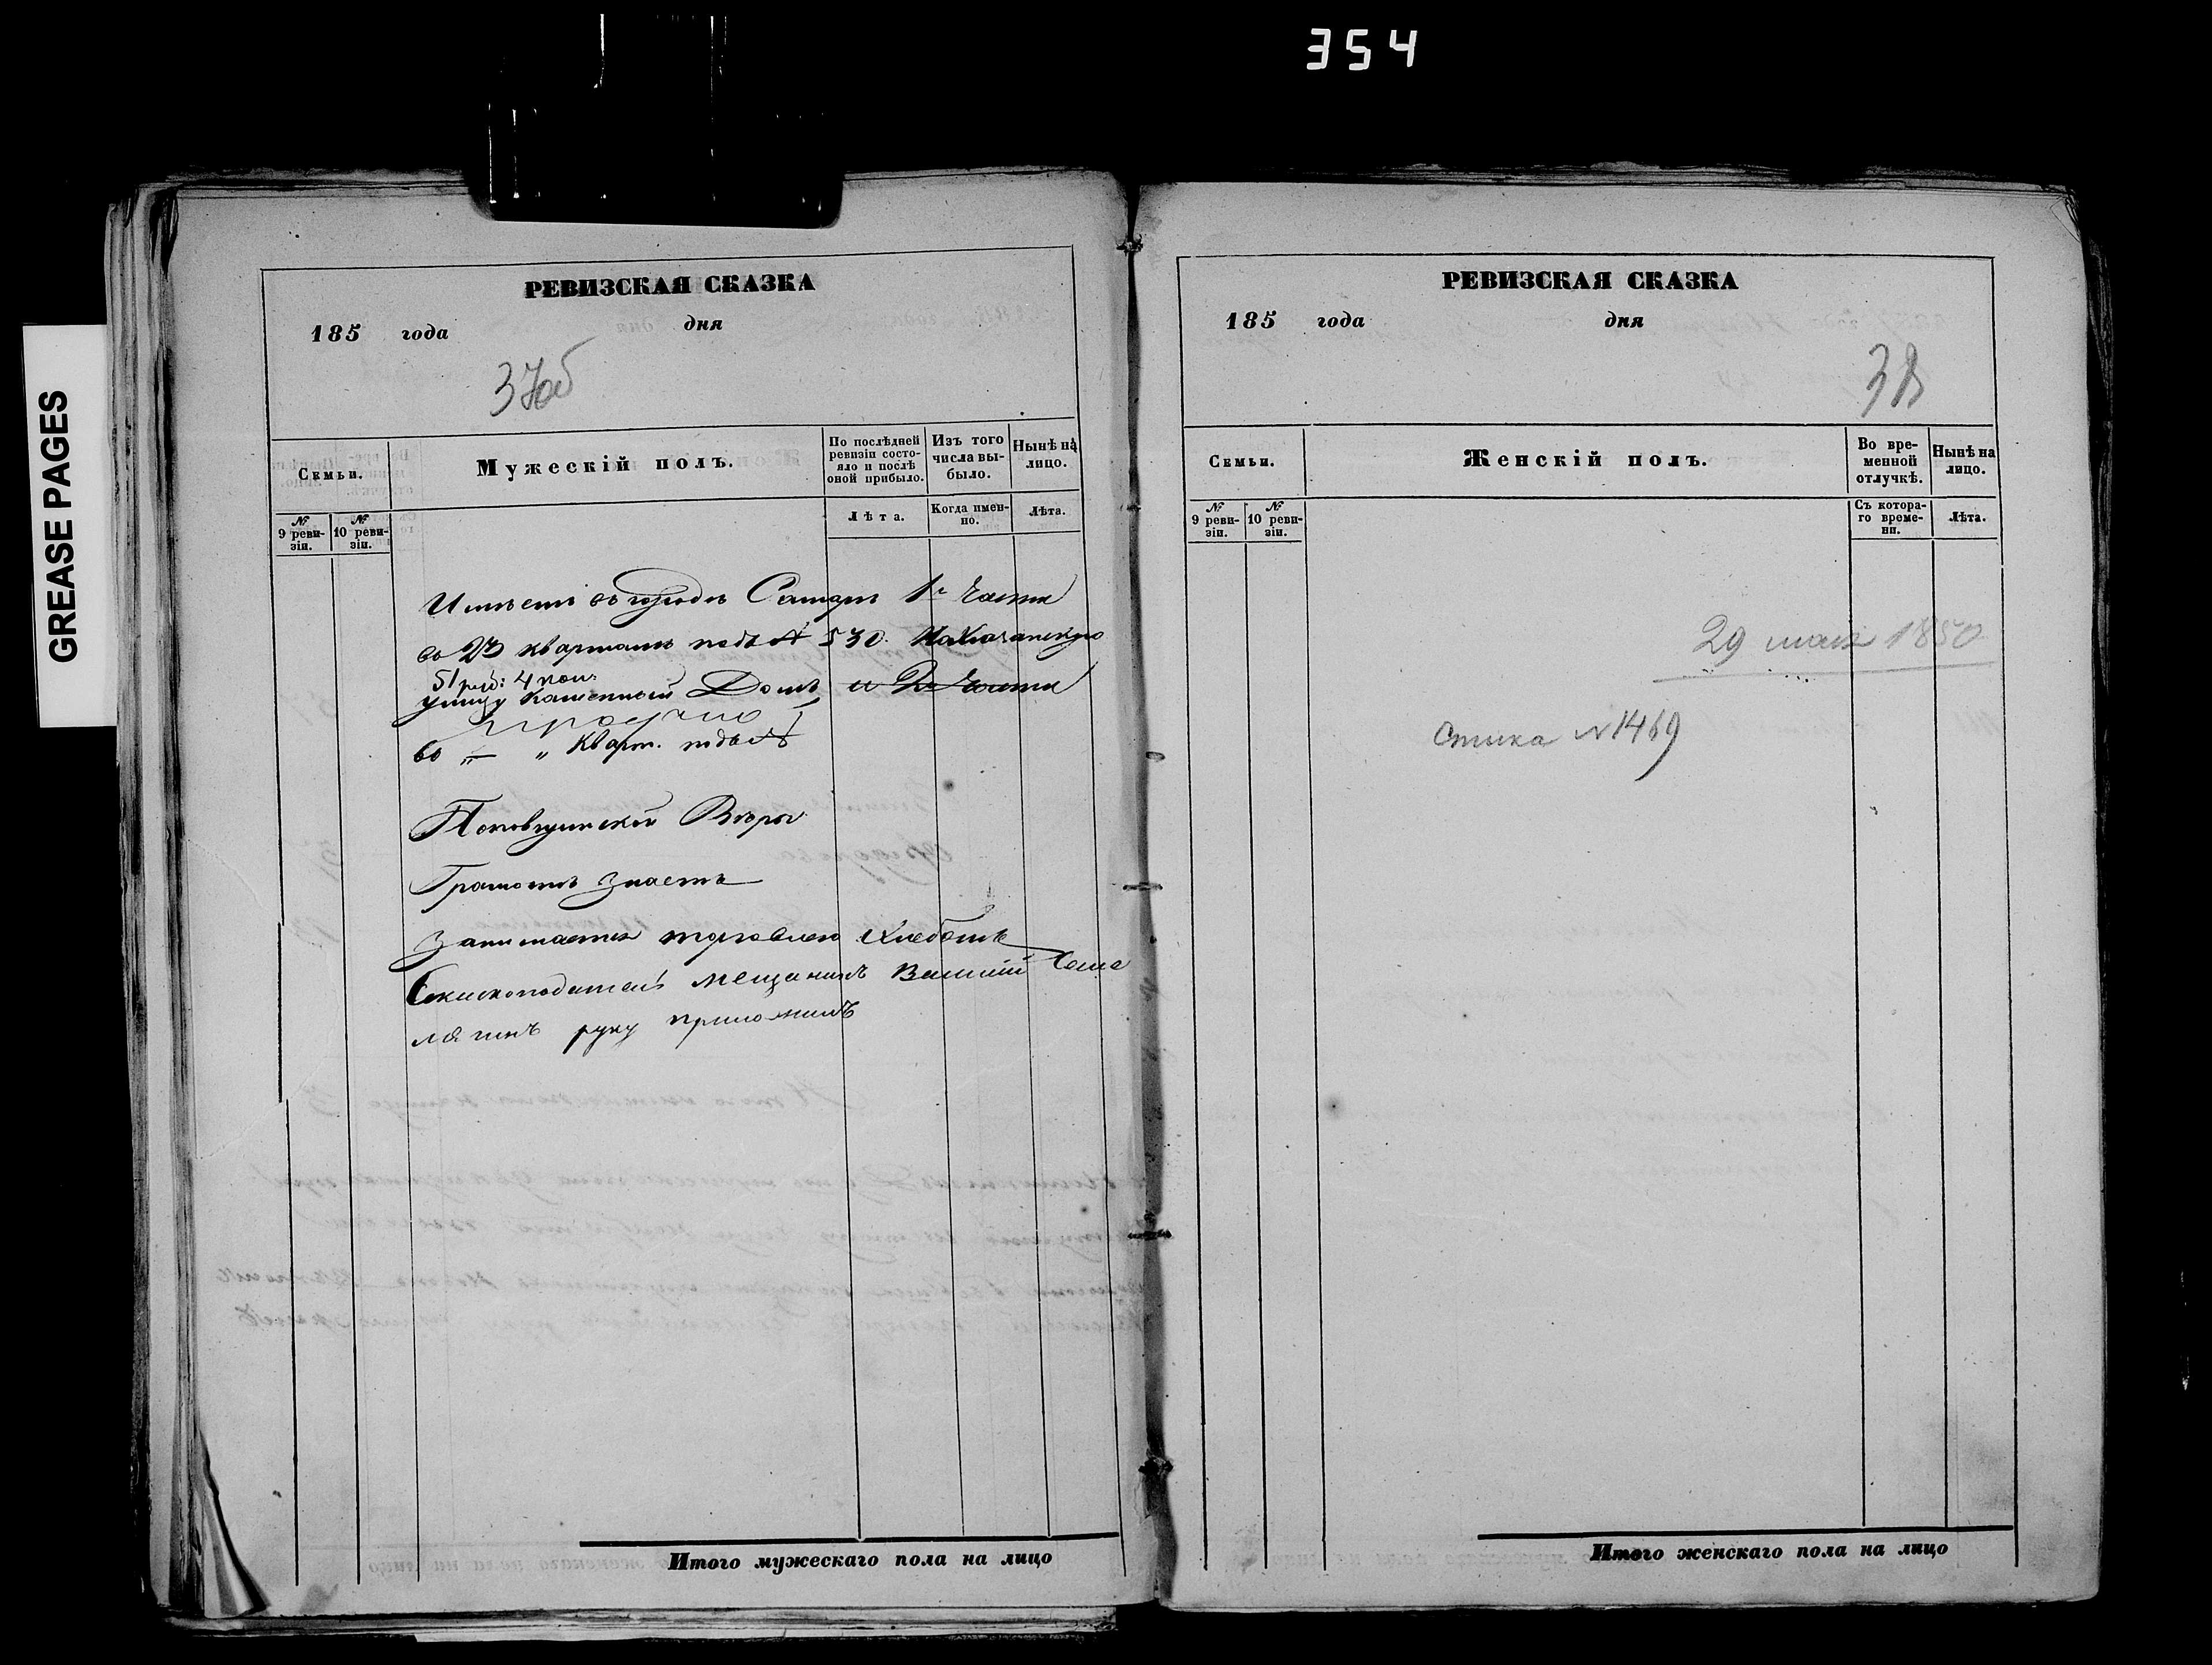 354
GREASE PAGES
РЕВИЗСКАЯ СКАЗКА
185 года дня
37об
Семьи.
Мужескій полъ.
По послѣдней ревизіи состояло и послѣ оной прибыло.
Изъ того числа выбыло.
Нынѣ на лицо.
№ 9 ревизіи.
№ 10 ревизіи.
Лѣта.
Когда именно.
Лѣта.
Имѣетъ въ городѣ Самарѣ 1й части
во 2мъ кварталѣ подъ № 530.
51 руб: 4 коп:
улицу каменный Домъ, и 2й части
во — " Кварт. подъ №
Поповщинской Вѣры
Грамотѣ знаетъ
Занимается торговлею хлебомъ
Скаскоподатель мещанинъ Василий
руку приложилъ
Итого мужескаго пола на лицо
РЕВИЗСКАЯ СКАЗКА
185 года дня
38
Семьи.
Женскій полъ.
Во временной отлучкѣ.
Нынѣ на лицо.
№ 9 ревизіи.
№ 10 ревизіи.
Съ котораго времени.
Лѣта.
29 мая 1850
№ 1469
Итого женскаго пола на лицо